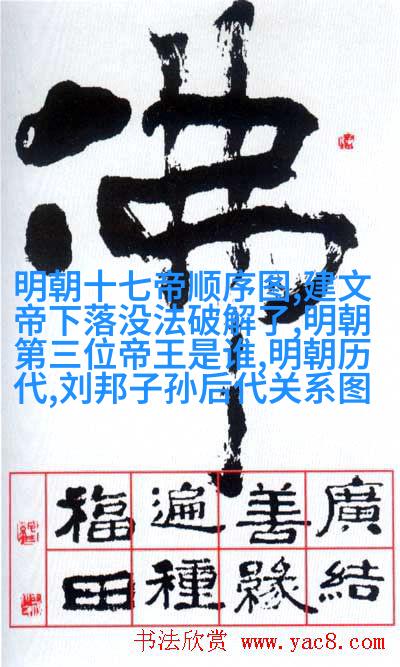 佛
明朝十七帝顺序图,建文
帝下落没法破解了,明朝
第三位帝王是谁,明朝历
代,刘邦子孙后代关系图
廣結
善緣
遍種
福田
书法欣赏 www.yac8.com